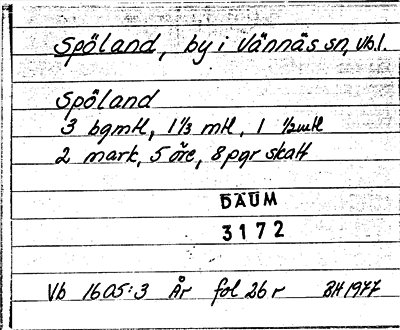 Spöland, by i Vännäs sn, Vb.l.
Spöland
3 bgmtl, 1 1/3 mtl, 1 1/2mtl
2 mark, 5 öre, 8 pgr skatt
DAUM
3172
Vb 1605:3 År fol 26 r BH 1977